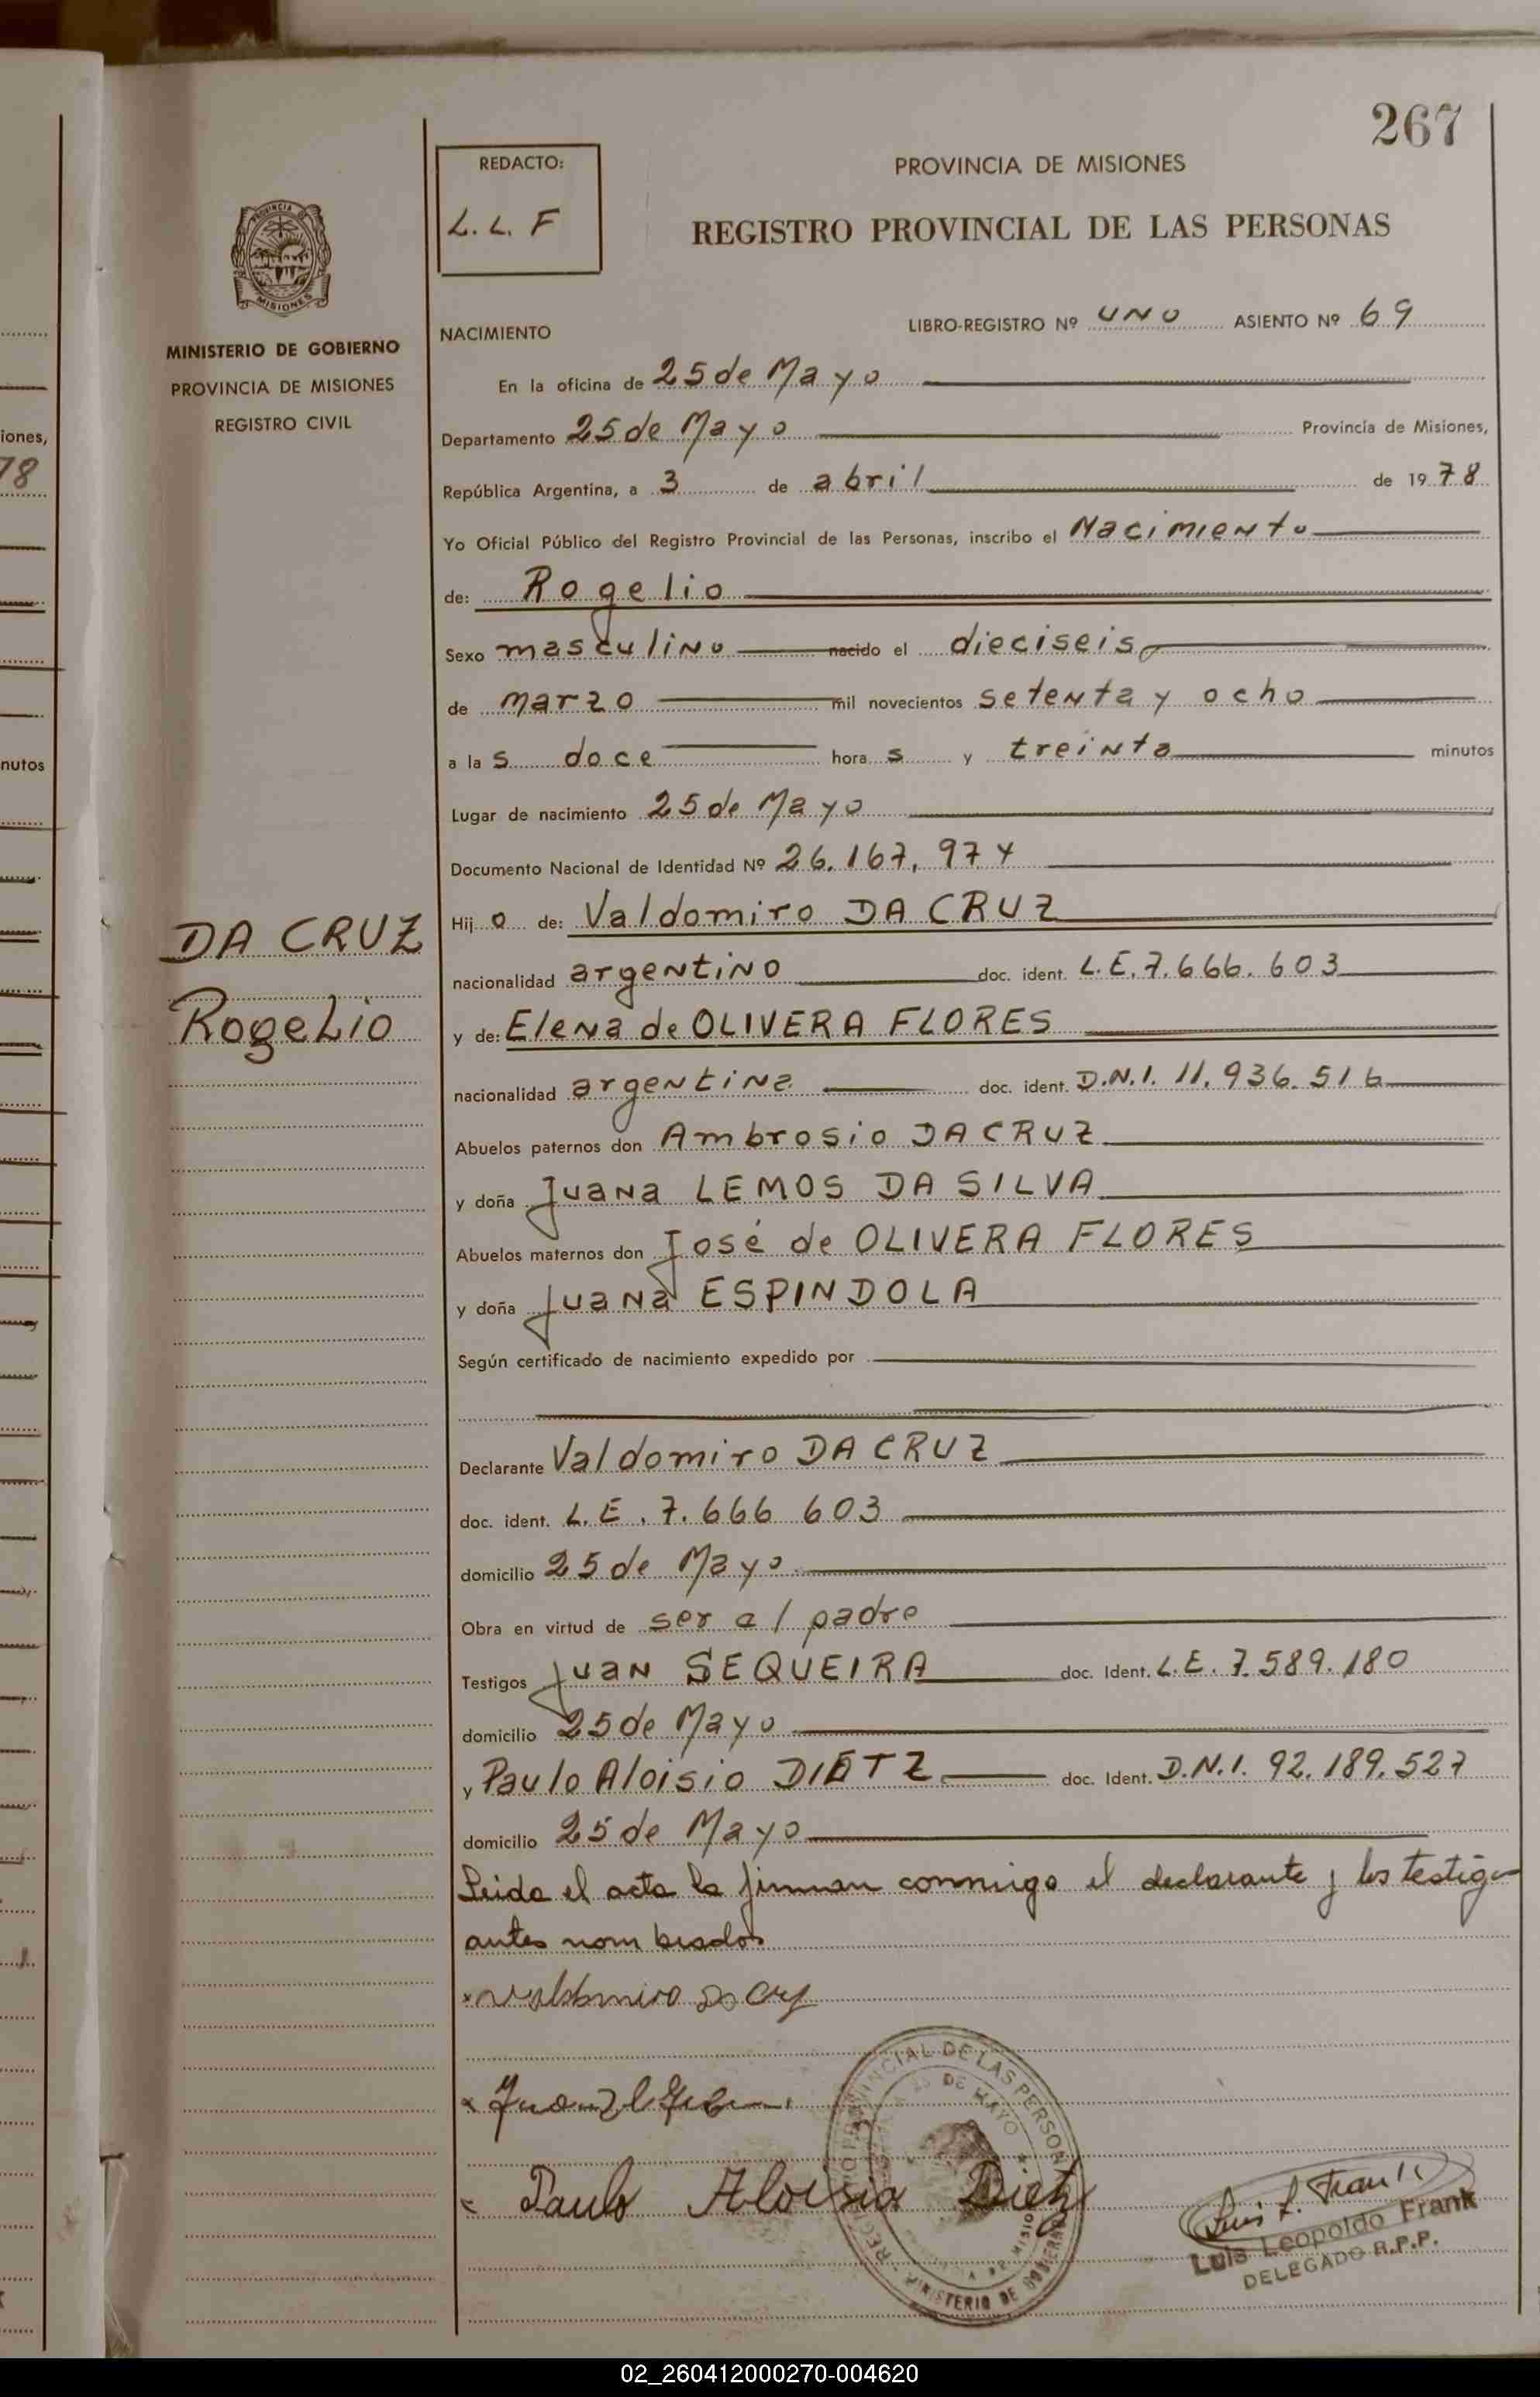 267
REDACTO:
L. L. F
PROVINCIA DE MISIONES
REGISTRO PROVINCIAL DE LAS PERSONAS
PROVINCIA DE
MISIONES
MINISTERIO DE GOBIERNO
PROVINCIA DE MISIONES
REGISTRO CIVIL
NACIMIENTO
LIBRO-REGISTRO Nº UNO ASIENTO Nº 69
En la oficina de 25 de Mayo
Departamento 25 de Mayo Provincia de Misiones,
República Argentina, a 3 de abril de 1978
Yo Oficial Público del Registro Provincial de las Personas, inscribo el Nacimiento
de: Rogelio
Sexo masculino nacido el dieciseis
de marzo mil novecientos setenta y ocho
a las doce horas y treinta minutos
Lugar de nacimiento 25 de Mayo
Documento Nacional de Identidad Nº 26.167.974
DA CRUZ
Rogelio
Hijo de: Valdomiro DA CRUZ
nacionalidad argentino doc. ident. L.E. 7.666.603
y de: Elena de OLIVERA FLORES
nacionalidad argentina doc. ident. D.N.I. 11.936.516
Abuelos paternos don Ambrosio DA CRUZ
y doña Juana LEMOS DA SILVA
Abuelos maternos don José de OLIVERA FLORES
y doña Juana ESPINDOLA
Según certificado de nacimiento expedido por
Declarante Valdomiro DA CRUZ
doc. ident. L.E. 7.666 603
domicilio 25 de Mayo
Obra en virtud de ser el padre
Testigos Juan SEQUEIRA doc. Ident. L.E. 7.589.180
domicilio 25 de Mayo
y Paulo Aloisio DIETZ doc. Ident. D.N.I. 92.189.527
domicilio 25 de Mayo
Leida el acta la firman conmigo el declarante y los testigos
antes nombrados
x Valdomiro Da Cruz
x Paulo Aloisio Dietz
Luis L. Frank
Luis Leopoldo Frank
DELEGADO R.P.P.
MINISTERIO DE GOBIERNO
02_260412000270-004620